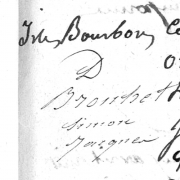 Isle Bourbon
D
Brouhet
Simon
Jacques